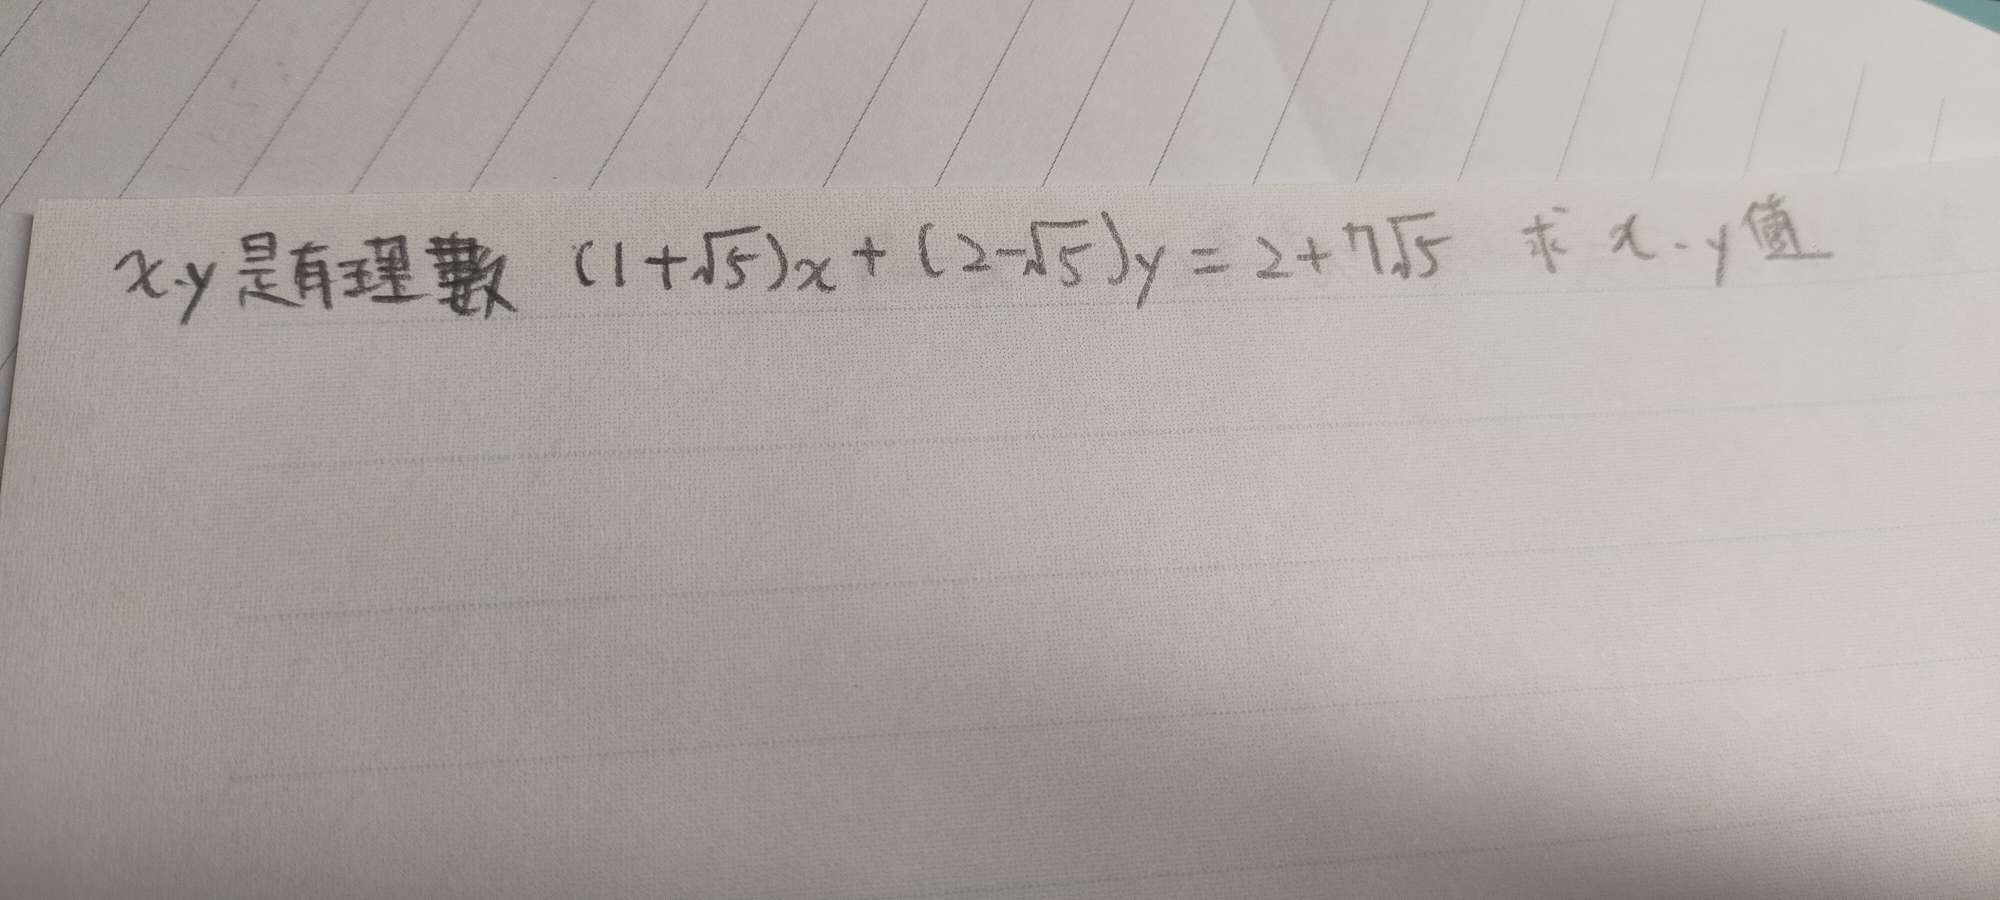 x.y是有理數 (1+√5)x+(2-√5)y=2+7√5 求 x.y值